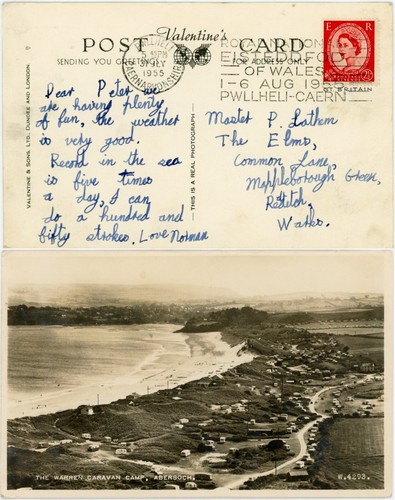 Valentine's
POST CARD
SENDING YOU GREETINGS
FOR ADDRESS ONLY
E R
2½D
PWLLHELI
5 PM
31 JLY
1955
CAERNARVONSHIRE
ROYAL NATIONAL
EISTEDDFOD
OF WALES
1-6 AUG 1955
PWLLHELI-CAERN
GT BRITAIN
Dear Peter we
are having plenty
of fun, the weather
is very good.
Record in the sea
is five times
a day, I can
do a hundred and
fifty strokes. Love Norman
Master P. Lathem
The Elms,
Common Lane,
Mappleborough Green,
Redditch,
Warks.
VALENTINE & SONS. LTD. DUNDEE AND LONDON
THIS IS A REAL PHOTOGRAPH
THE WARREN CARAVAN CAMP, ABERSOCH.
W.4293.